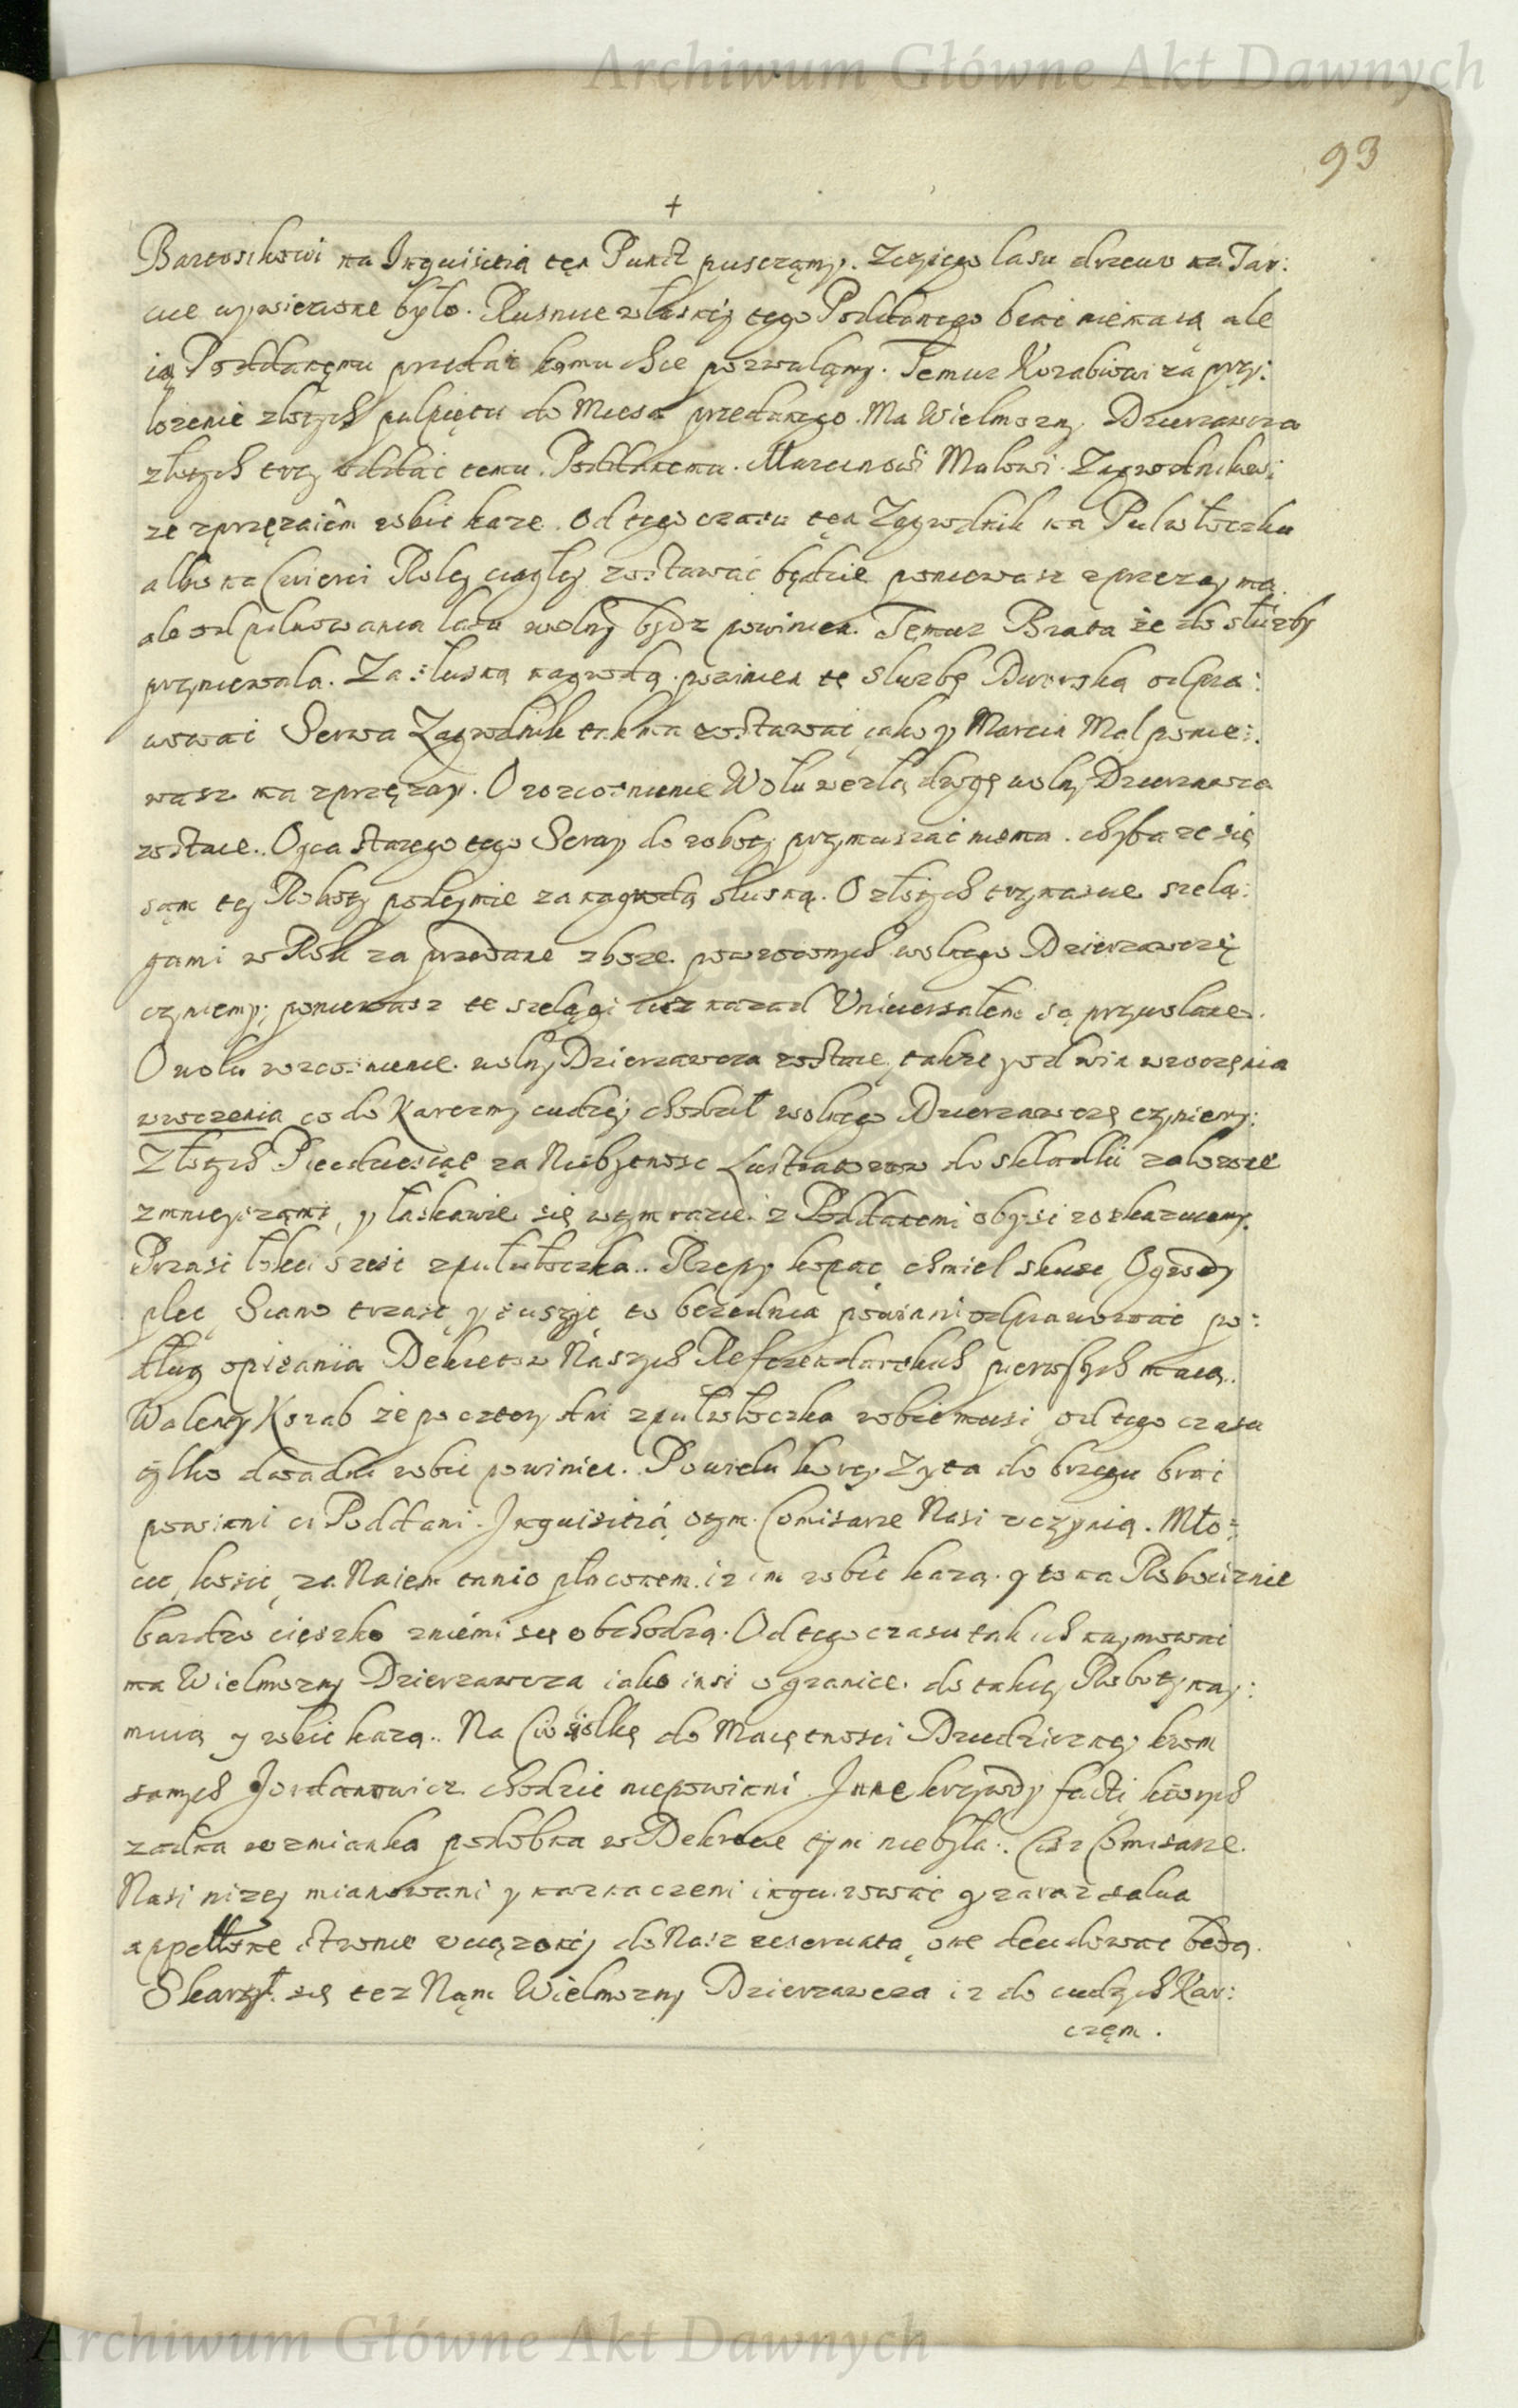 Archiwum Główne Akt Dawnych
93
+
Bartosikowi na Inquisitią tęn Punct pusczamy. Zczyiego lasu drzewo na Tar:
cice wywiezione było. Rusnice własnéy tego Poddanego brac niemaią ale
ią Poddanęmu przedać komu chce pozwalamy. Temuz Korabiowi za przy:
łozenie złotych pułpięta do Miesa przedanego. Ma Wielmozny Dzierzawcza
złotych trzy oddać temu Poddanemu. Marcinowi Malowi Zagrodnikowi
ze zprzęzaiem robic kaze. Od tego czasu tęn Zagrodnik na Pułwłoczku
albo na Cwierci Roley ciągłey zostawać będzie poniewasz zprzezay ma
ale od pilnowania lasu wolny bydz powinien. Temuz Brata że do słuzby
przyniewala. Za słuszną nagrodą powinien tę słuzbę Dworską odpra:
wowac Serwa Zagrodnik tak ma zostawać iako y Marcin Mal ponie:
wasz ma zprzęzay. O rozcosnienie Wołu wezłą drogę wolny Dzierzawca
zostaie. Oyca starego tego Serwy do roboty przymuszać niema. chyba ze się
sąm tey Roboty podeymie za nagrodą słuszną. O złotych trzynascie szelą:
gami w Rok za przedane zboze powroconych wolnego Dzierzawczę
czyniemy; poniewasz te szelągi iusz nazad Uniwersałem są przywołane.
O wołu rozcosnienie wolny Dzierzawcza zostaie, takze y od win wroczęnia
wroczenia co do Karczmy cudzey chodził wolnego Dzierzawczę czyniemy:
Złotych Piecdziesiąt za Niebytnosc Lustratorow do składki zaborone
zmnieyszamy, y łaskawie się wtym razie z Poddanemi obeysc roskazuiemy.
Prząsc łokci szesc zpułwłoczka. Rzepy kopac, chmiel skusc, Ogrody
pleć, Siano trząsc, y suszyc, to bezednia powinni odprawowac po:
dług opisania Dekretow Naszych Referendarskich pierwszych maią.
Walenty Korab że po cztery dni zpułwłoczka robic musi, od tego czasu
tylko dwa dni robic powinien. Po wielu korcy Zyta do brzegu brac
powinni ci Poddani. Inquisitią otym Comisarze Nasi uczynią. Mło:
cic, kosic, za Naiem tanio płaconem iz im robic kazą. y to na Roboczinie
bardzo cieszko zniemi się obchodzą. Od tego czasu tak ich naymowac
ma Wielmozny Dzierzawcza iako insi o granice. do takiey Roboty nay:
muią y robic kazą. Na Ciosiołkę do Maiętnosci Dziedziczney krom
samych Jordanowic chodzic niepowinni. Inne krzywdy facti, ktorych
zadna wzmianka podobna w Dekrecie tym niebyla. Ciz Comisarze
Nasi nizey mianowani y naznaczeni inquirowac y zaraz salva
appellōne stronie uciązonéy do Nasz reservata, one decidowac będą.
Skarzył się tez Nąm Wielmozny Dzierzawcza iz do cudzych Kar:
częm.
Archiwum Główne Akt Dawnych